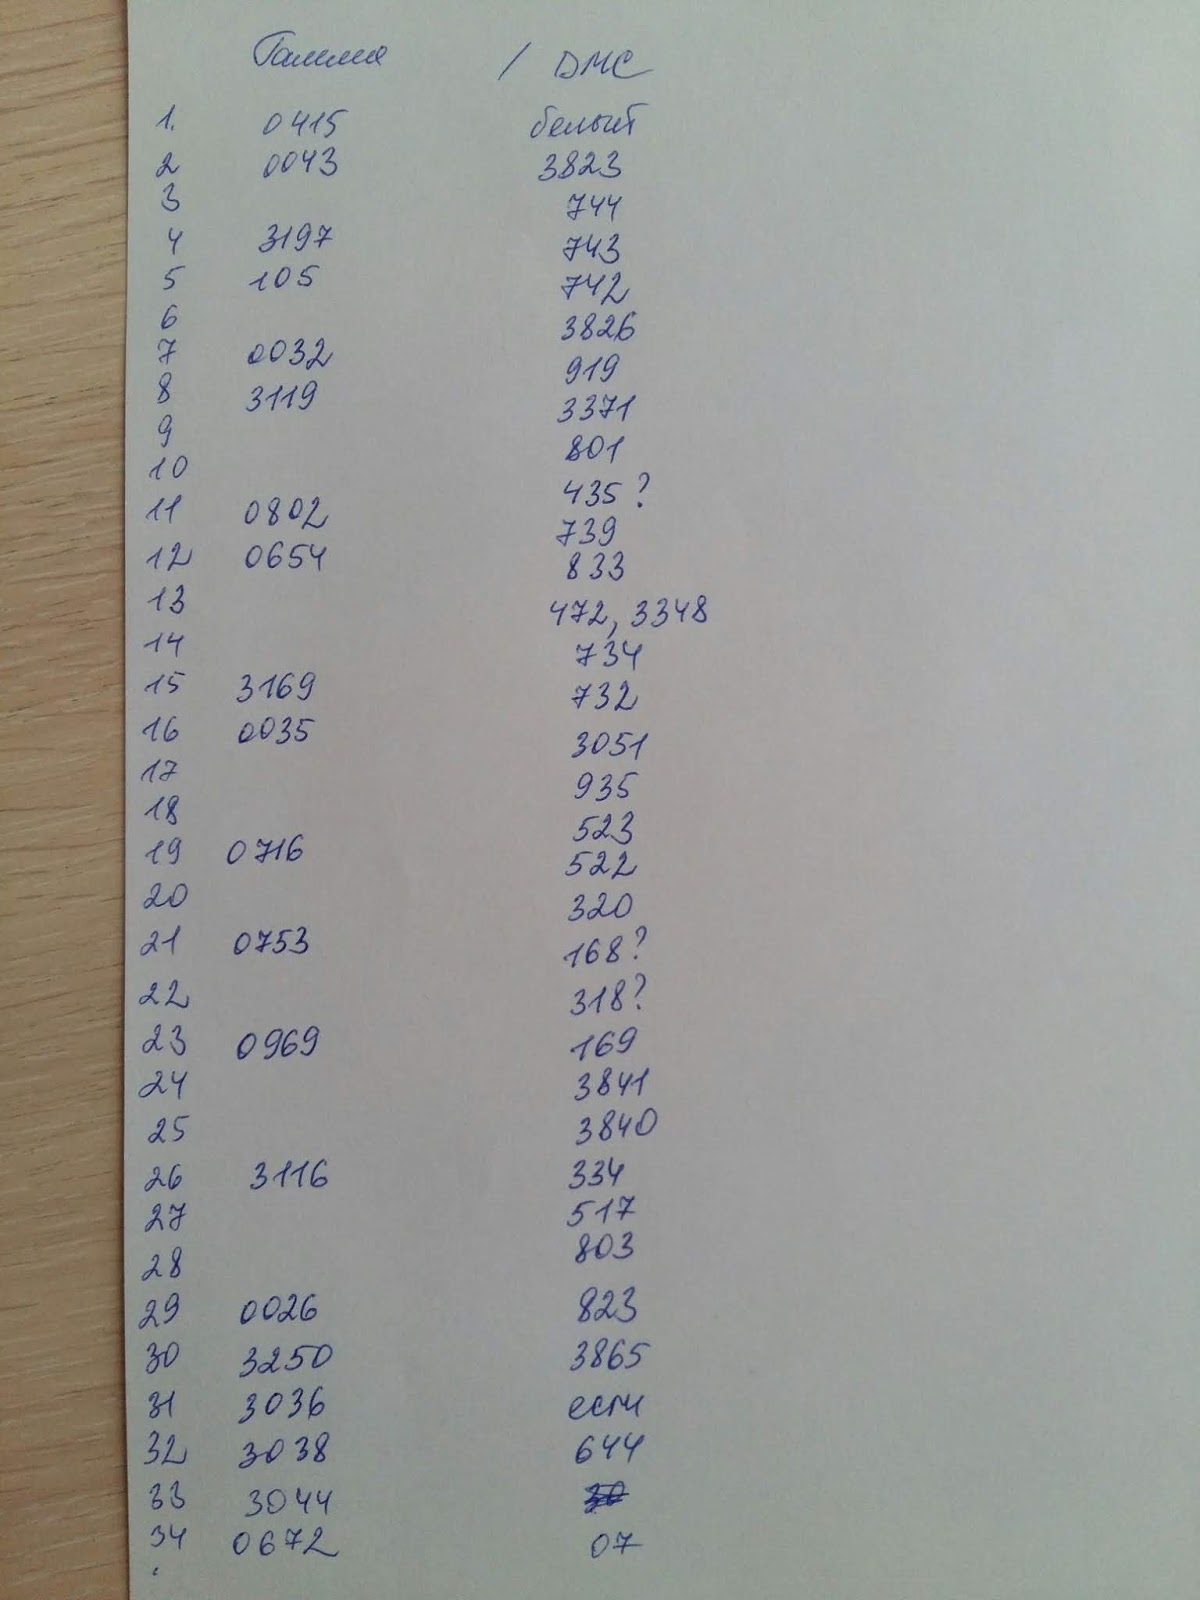 Гамма / DMC
1. 0415 белый
2 0043 3823
3 744
4 3197 743
5 105 742
6 3826
7 0032 919
8 3119 3371
9 801
10 435?
11 0802 739
12 0654 833
13 472, 3348
14 734
15 3169 732
16 0035 3051
17 935
18 523
19 0716 522
20 320
21 0753 168?
22 318?
23 0969 169
24 3841
25 3840
26 3116 334
27 517
28 803
29 0026 823
30 3250 3865
31 3036 ecru
32 3038 644
33 3044
34 0672 07